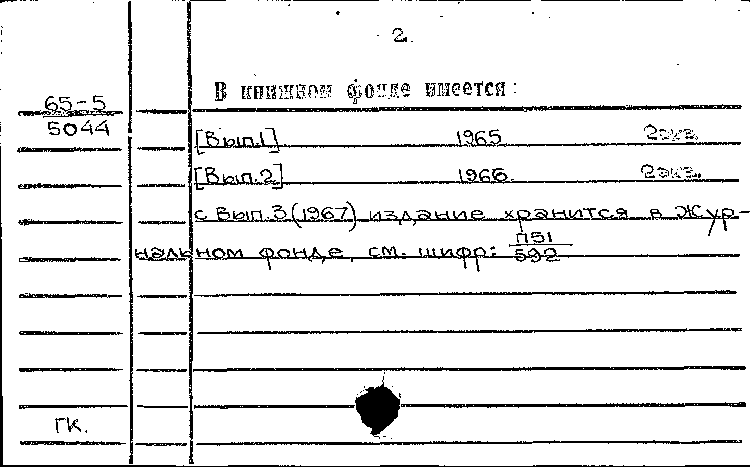 2.
В книжном фонде имеется:
65-5
5044
[Вып.1] 1965 2экз.
[Вып.2] 1966. 2экз.
с Вып.3(1967) издание хранится в Жур-
нальном фонде, см. шифр: П51
592
ГК.